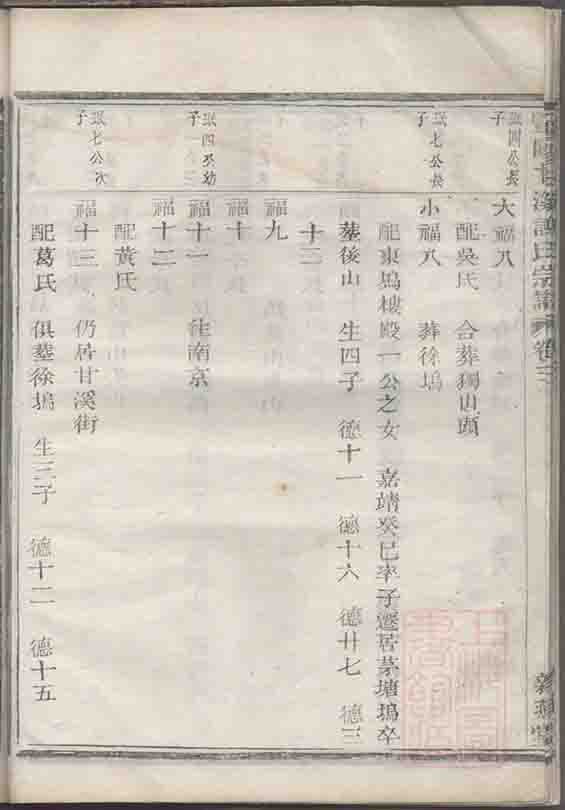 珉四公長子
大福八
配吳氏 合葬獨山頭
珉七公長子
小福八 葬徐塢
配東塢樓殿一公之女 嘉靖癸巳率子遷居茅塘塢卒
墓後山 生四子 德十一 德十六 德廿七 德三
十三
福九
福十
珉四公幼子
福十一 徙南京
福十二
配黃氏
珉七公次子
福十三 仍居甘溪街
配葛氏 俱墓徐塢 生三子 德十二 德十五
氏宗譜 卷三